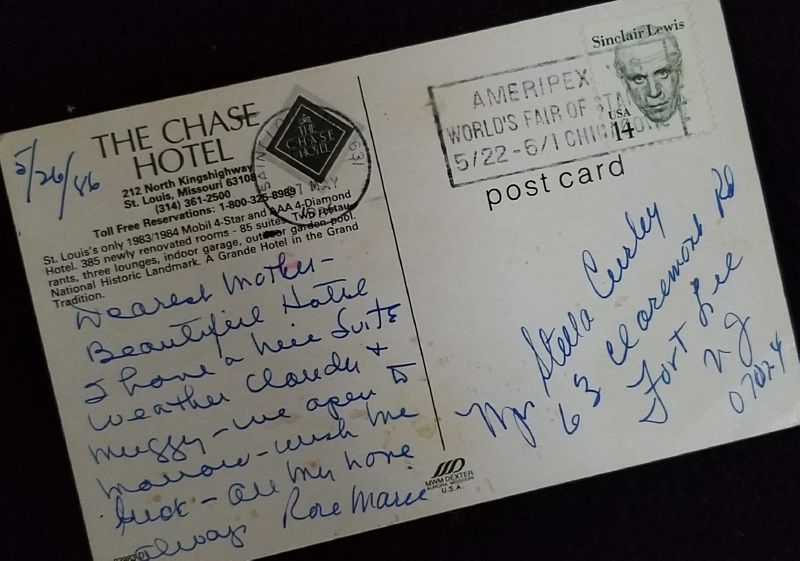 5/26/86
THE CHASE
HOTEL
212 North Kingshighway
St. Louis, Missouri 63108
(314) 361-2500
Toll Free Reservations: 1-800-325-8989
St. Louis's only 1983/1984 Mobil 4-Star and AAA 4-Diamond
Hotel. 385 newly renovated rooms - 85 suites. Two restau-
rants, three lounges, indoor garage, outdoor garden pool.
National Historic Landmark. A Grande Hotel in the Grand
Tradition.
Dearest Mother-
Beautiful Hotel
I have a nice Suite
weather cloudy +
muggy - we open to
morrow - wish me
luck - all my love
always Rose Marie
THE
CHASE
HOTEL
SAINT LO 631
27 MAY
AMERIPEX
WORLD'S FAIR OF STA
5/22-6/1 CHI
Sinclair Lewis
USA
14
post card
Mrs Stella Curley
63 Claremont Rd
Fort Lee
NJ
07024
MWM DEXTER
AURORA, MISSOURI
U.S.A.